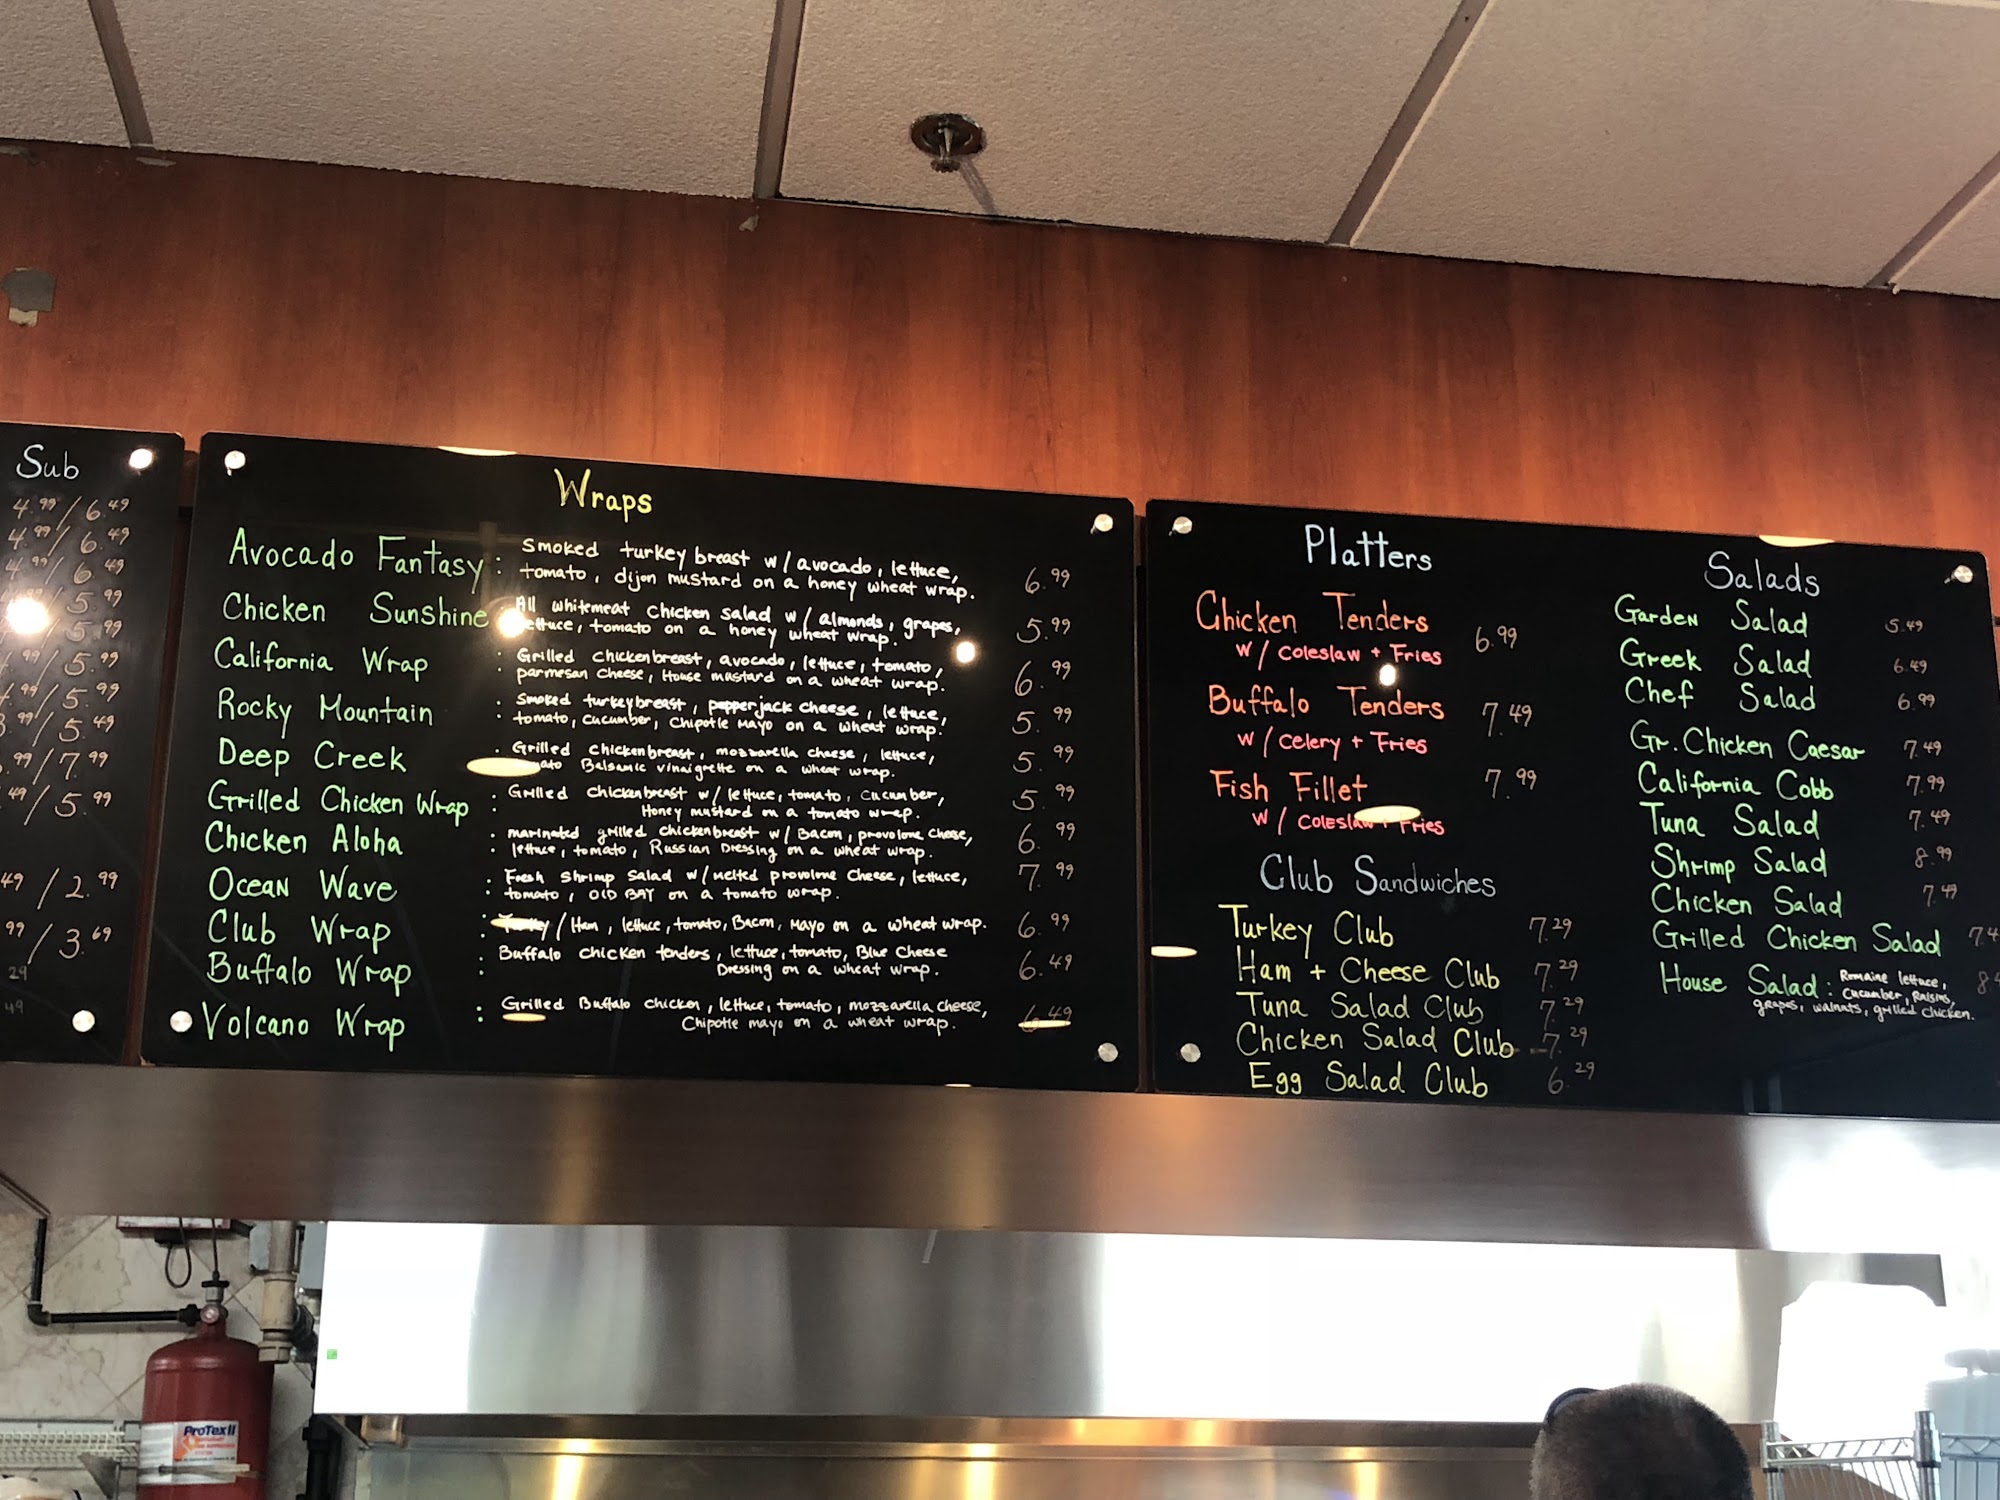 Sub
4.99/6.49
4.99/6.49
4.99/6.49
/5.99
/5.99
/5.99
.99/5.99
.99/5.49
.99/7.99
.49/5.99
.49/2.99
.99/3.69
29
49
Wraps
Avocado Fantasy: Smoked turkey breast w/ avocado, lettuce, 6.99
tomato, dijon mustard on a honey wheat wrap.
Chicken Sunshine All whitemeat chicken salad w/ almonds, grapes, 5.99
lettuce, tomato on a honey wheat wrap.
California Wrap : Grilled chickenbreast, avocado, lettuce, tomato, 6.99
parmesan cheese, House mustard on a wheat wrap.
Rocky Mountain : Smoked turkeybreast, pepperjack cheese, lettuce, 5.99
tomato, cucumber, Chipotle Mayo on a wheat wrap.
Deep Creek : Grilled chickenbreast, mozzarella cheese, lettuce, 5.99
tomato Balsamic vinaigrette on a wheat wrap.
Grilled Chicken Wrap : Grilled chickenbreast w/ lettuce, tomato, cucumber, 5.99
Honey mustard on a tomato wrap.
Chicken Aloha : marinated grilled chickenbreast w/ Bacon, provolone cheese, 6.99
lettuce, tomato, Russian Dressing on a wheat wrap.
Ocean Wave : Fresh Shrimp Salad w/ melted provolone cheese, lettuce, 7.99
tomato, OLD BAY on a tomato wrap.
Club Wrap : Turkey/Ham, lettuce, tomato, Bacon, Mayo on a wheat wrap. 6.99
Buffalo Wrap : Buffalo chicken tenders, lettuce, tomato, Blue Cheese 6.49
Dressing on a wheat wrap.
Volcano Wrap : Grilled Buffalo chicken, lettuce, tomato, mozzarella cheese, 6.49
Chipotle mayo on a wheat wrap.
Platters
Chicken Tenders 6.99
w/ Coleslaw + Fries
Buffalo Tenders 7.49
w/ Celery + Fries
Fish Fillet 7.99
w/ Coleslaw + Fries
Club Sandwiches
Turkey Club 7.29
Ham + Cheese Club 7.29
Tuna Salad Club 7.29
Chicken Salad Club 7.29
Egg Salad Club 6.29
Salads
Garden Salad 5.49
Greek Salad 6.49
Chef Salad 6.99
Gr. Chicken Caesar 7.49
California Cobb 7.99
Tuna Salad 7.49
Shrimp Salad 8.99
Chicken Salad 7.49
Grilled Chicken Salad 7.4
House Salad: Romaine lettuce, 8
cucumber, Raisins,
grapes, walnuts, grilled chicken.
ProTex II